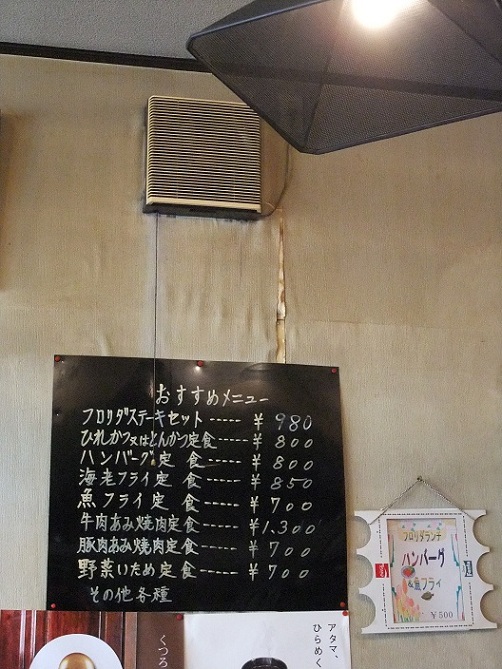 おすすめメニュー
フロリダステーキセット-----¥ 980
ひれかつ又はとんかつ定食----¥ 800
ハンバーグ定 食-----¥ 800
海老フライ定 食-----¥ 850
魚フライ定 食-----¥ 700
牛肉あみ焼肉定食----¥1.300
豚肉あみ焼肉定食----¥ 700
野菜いため定食----¥ 700
その他各種
フロリダランチ
ハンバーグ
&魚フライ
¥500
アタマ、
ひらめく
くつろ